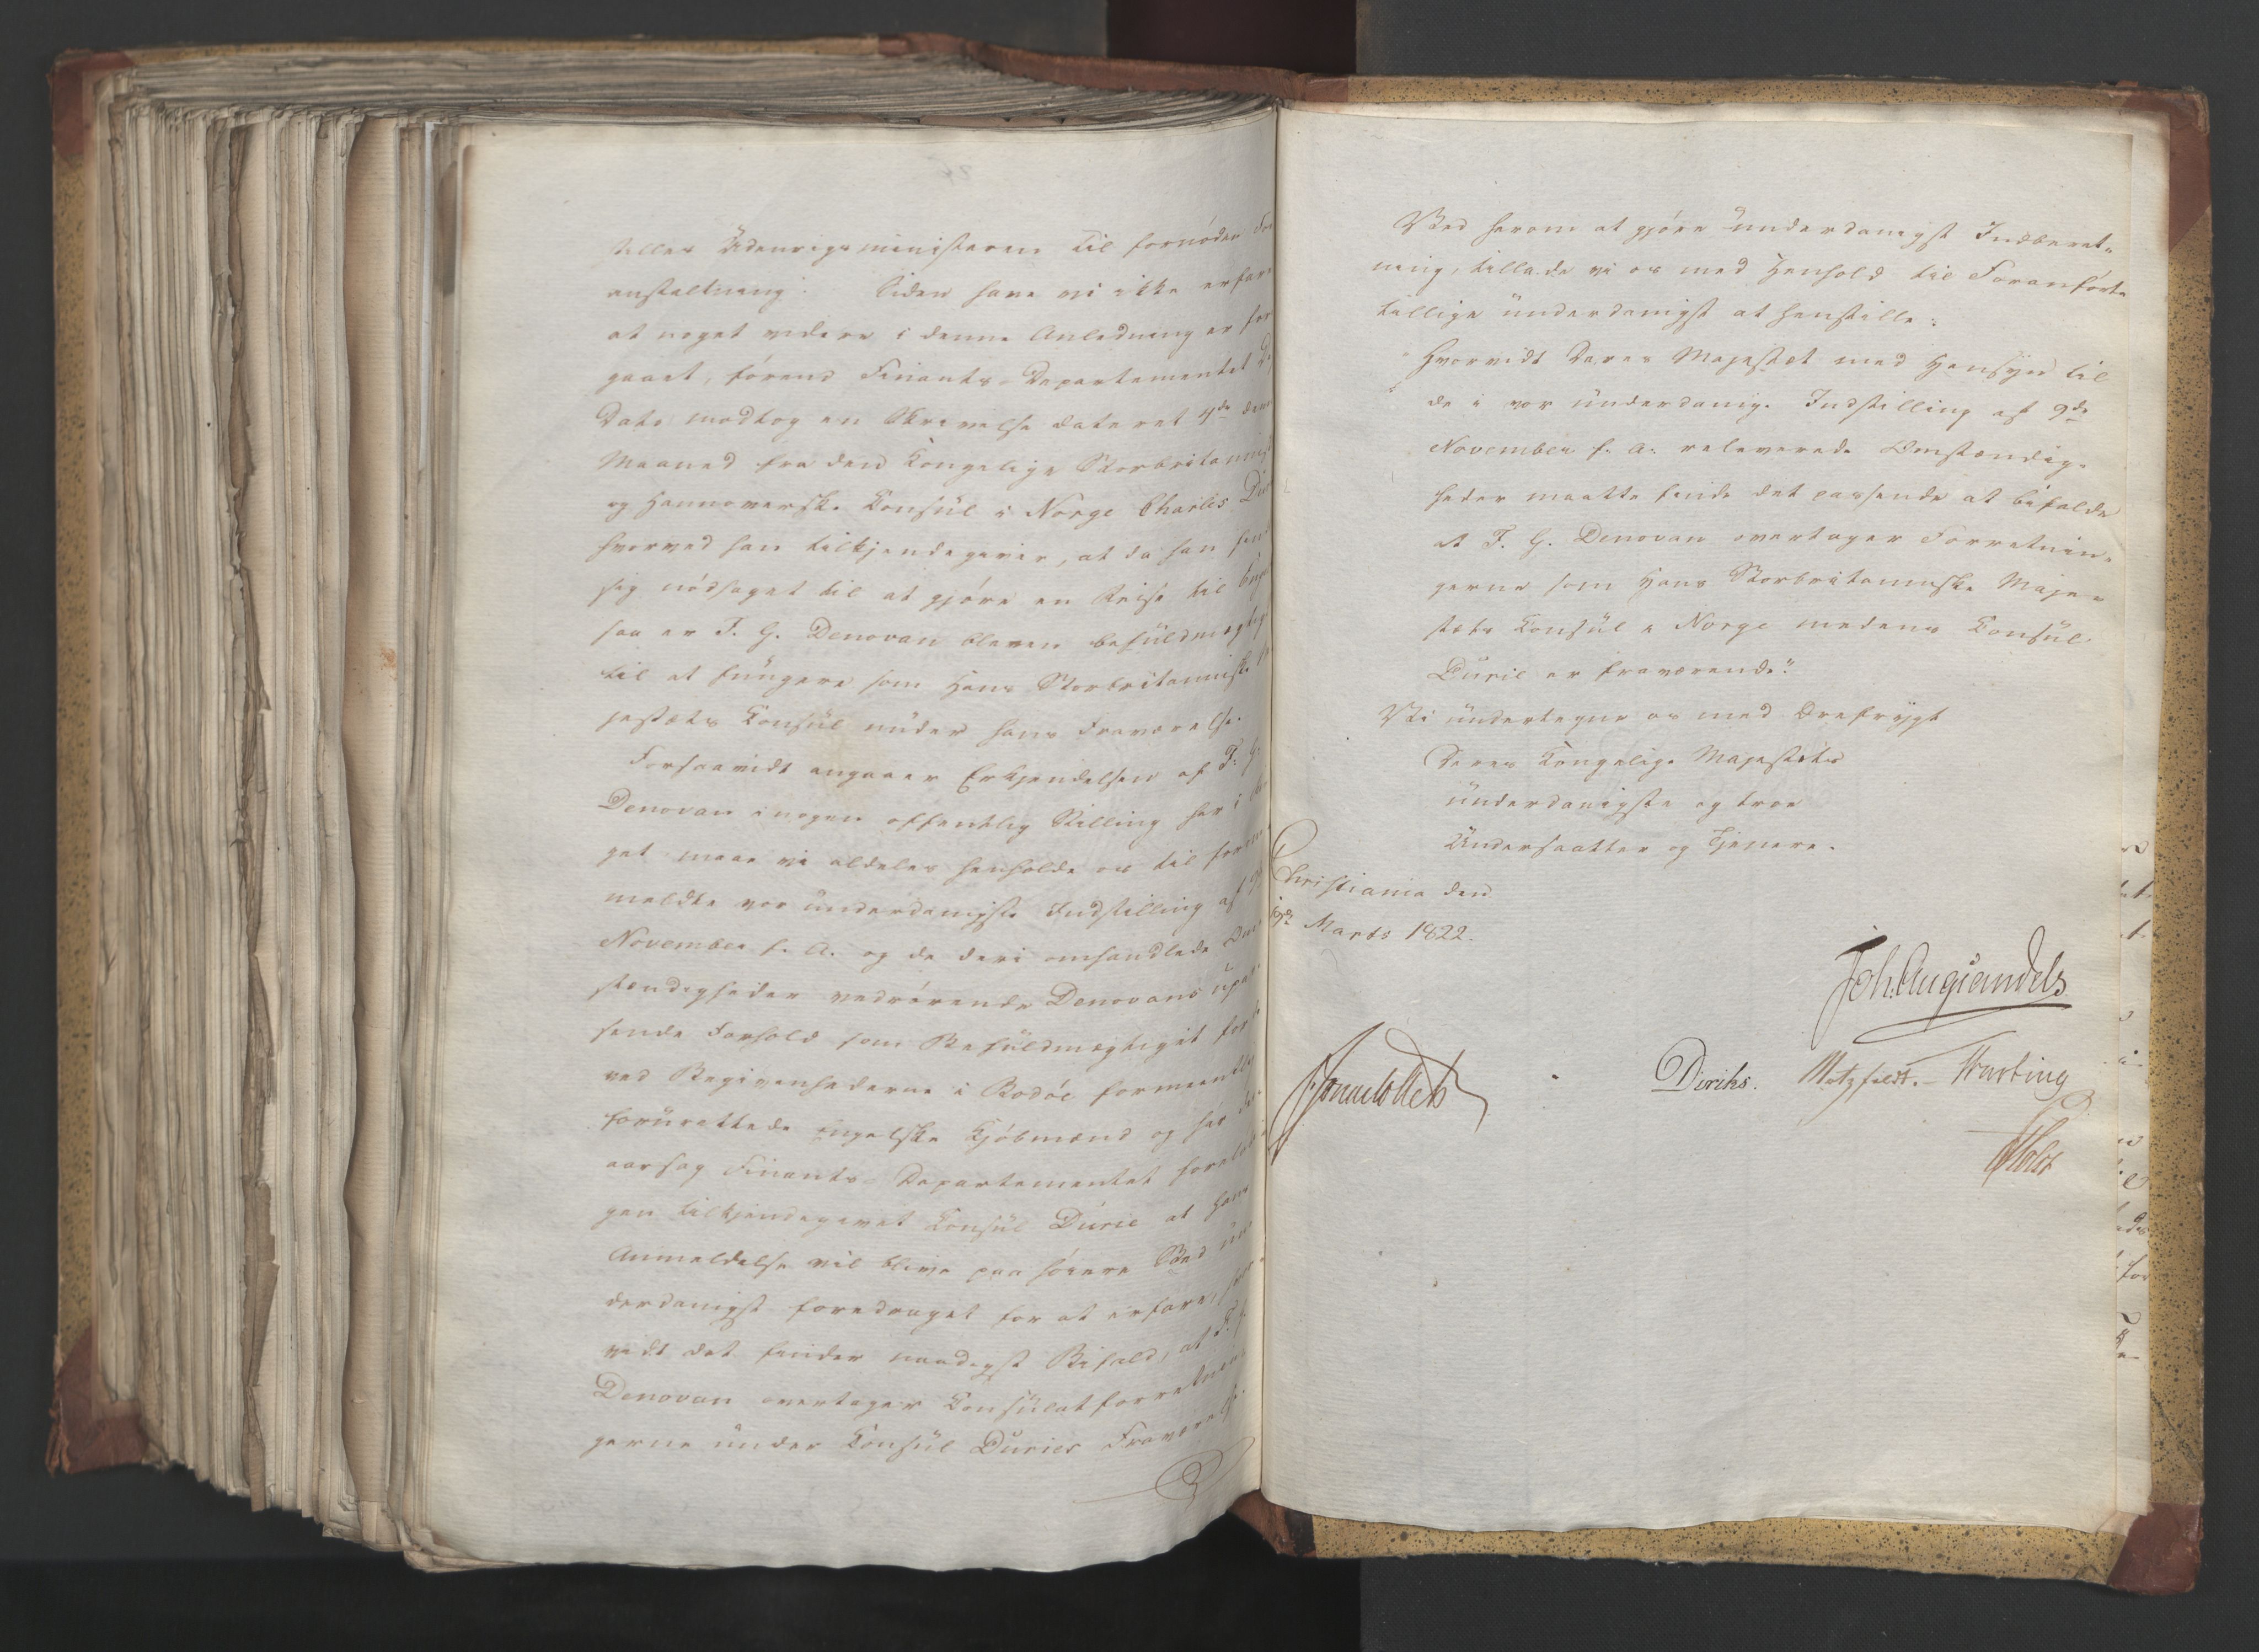 stilles Üdenrigsministeren til fornøden For
anstaltning. Siden have vi ikke erfaret
at noget videre i denne Anledning er fore
gaaet, førend Finants-Departementet
Dato modtog en Skrivelse dateret 4de denne
Maaned fra den Kongelige Storbritanniske
og Hannoverske Consül i Norge Charles Dür
hvorved han tilkjendegiver, at da han seer
sig nödsaget til at gjöre en Reise til Eng
saa er F. G. Denovan bleven befüldmægtiget
til at füngere som Hans Storbritanniske Ma
jestæts Consül ünder hans Fraværelse.
Forsaavidt angaaer Erkjendelsen af F. G.
Denovan i nogen offentlig Stilling her i Ri
get maae vi aldeles henholde os til foran
meldte vor ünderdanigste Indstilling af 9de
November f. A. og de deri omhandlede Om
stændigheder vedrörende Denovans üpas
sende Forhold som Befüldmægtiget for de
ved Begivenhederne i Bodöe formeentlig
forürettede engelske Kjöbmænd og har des
aarsag Finants-Departementet forelöbi
gen tilkjendegivet Consül Dürie at hans
Anmeldelse vil blive paa höiere Sted ün
derdanigst foredraget for at erfare, hvor
vidt det finder naadigst Bifald, at F. G.
Denovan overtager Consülatforretnin
gerne ünder Consül Düries Fraværelse.
Ved herom at gjöre ünderdanigst Indberet-
ning, tillade vi os med Henhold til Foranförte
tillige ünderdanigst at henstille:
Hvorvidt Deres Majestæt med Hensyn til
de i vor ünderdanige Indstilling af 9de
November f. A. releverede Omstændig-
heder maatte finde det passende at bifalde
at F. G. Denovan overtager Forretnin-
gerne som Hans Storbritanniske Maje-
stæts Consül i Norge medens Consül
Dürie er fraværende."
Vi ündertegne os med Ærefrygt
Deres Kongelige Majestæts
ünderdanigste og troe
Undersaatter og Tjenere.
Christiania den
Marts 1822.
Joh. Aug. Sandels
Jonas Collett
Diriks. Motzfeldt. Fasting
Holst